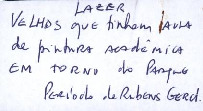 LAZER
VELHOS que tinham AULA
de pintura ACADÊMICA
EM TORNO do Parque
Período de Rubens Gerch.